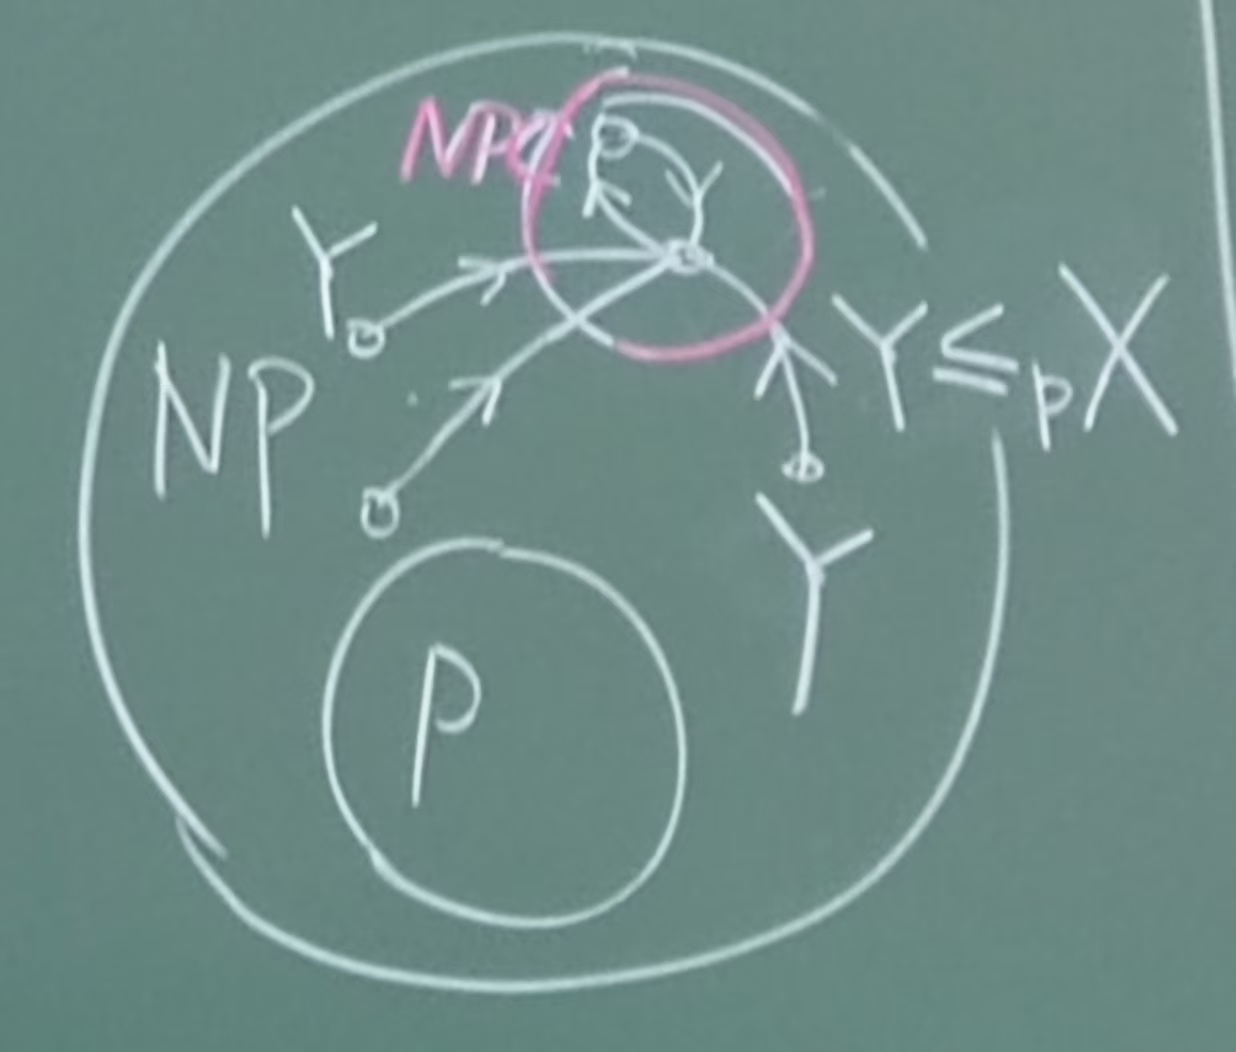 NPC
Y
NP
Y ≤p X
Y
P